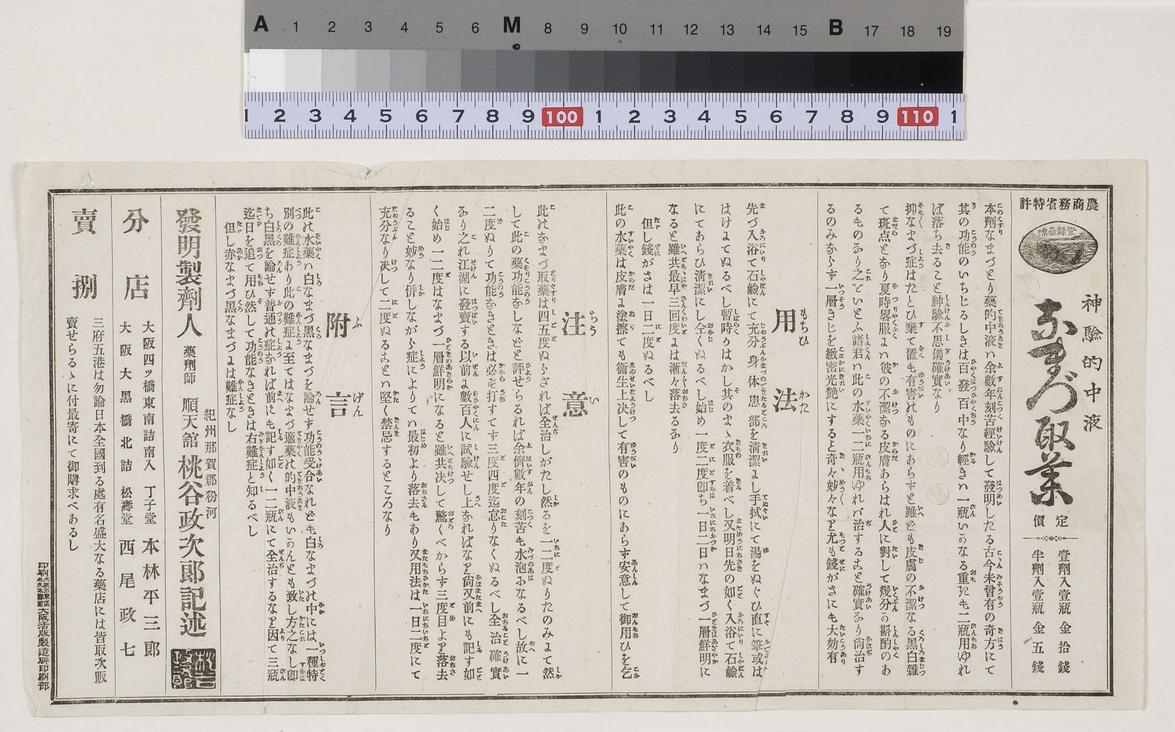 A 1 2 3 4 5 6 M 8 9 10 11 12 13 14 15 B 17 18 19
1 2 3 4 5 6 7 8 9 100 1 2 3 4 5 6 7 8 9 110 1
農商務省特許
登録商標
神驗的中液
なまづ取薬
定價
壹劑入壹瓶 金拾錢
半劑入壹瓶 金五錢
本劑なまづとり藥的中液ハ余數年刻苦經驗して發明したる古今未曾有の奇方にて
其の功能のいちじるしきは百發百中なり輕きハ一瓶いかなる重だも二瓶用ゆれ
ば落ち去ること神驗不思儀確實なり
抑なまづ症はたとひ棄て置も有害れものにあらずと雖ども皮膚の不潔なる黒白雜
て斑点となり夏時畧服よハ彼の不潔なる皮膚あらはれ人に對して幾分の斟酌のあ
るものあり之といとふ諸君ハ此の水藥一二瓶用ゆれバ治すること確實なり尚治す
るのみならず一層きじを緻密光艶にすること奇々妙々なを尤も錢がさにも大効有
用法
もちひかた
先づ入浴て石鹼にて充分身体患部を清潔よし手拭にて湯をぬぐひ直に筆或は
はけよてぬるべし暫時かはかし其のまゝ衣服を着べし又明日先の如く入浴て石鹼
にてあらひ清潔にし全くぬるべし始め一度二度卽ち一日二日ハなまづ一層鮮明に
なると雖共最早三回度よは漸々落去るなり
但し錢がさは一日二度ぬるべし
此の水藥は皮膚よ塗擦ても衞生上决して有害のものにあらず安意して御用ひを乞
注意
ちうい
此はなまづ取薬は四五度ぬらざれば全治しがたし然るを一二度ぬりたのみよて然
して此の藥功能なしなどと評せらるれば余儕數年の刻苦も水泡なるべし故に一
二度ぬりて功能なきときは必ず打すてず三度四度迄怠りなくぬるべし全治確實
あり之れ江湖に發賣する以前よ數百人に試驗せし上なればなを尚又前にも記す如
く始め一二度はなまづ一層鮮明になると雖共决して驚くべからず三度目よを落去
ること妙なり併しながら症によりてハ最初より落去もあり又用法は一日二度にて
充分なり决して二度ぬるよとハ堅く禁忌するところなり
附言
ふげん
此は水藥ハ白なまづ黒なまづを論せず功能受合なれども白なまづれ中には一種特
別の難症あり此の難症よ至てはなまづ適藥れ的中液もいかんとも致し方之なし卽
ち白黒を論せず普通れ症なれば前にも記す如く一二瓶にて全治するなを因て三瓶
迄日を追て用ひ然して功能なきときは右難症と知るべし
但し赤なまづ黒なまづよは難症なし
紀州那賀郡粉河
發明製劑人 藥劑師 順天舘 桃谷政次郎記述
分店
大阪四ツ橋東南詰南入 丁子堂 本林平三郎
大阪大黒橋北詰 松壽堂 西尾政七
賣捌
三府五港は勿論日本全國到る處有名盛大なる藥店には皆取次販
賣せらるゝに付最寄にて御購求べあるし
大阪活版製造所印刷部